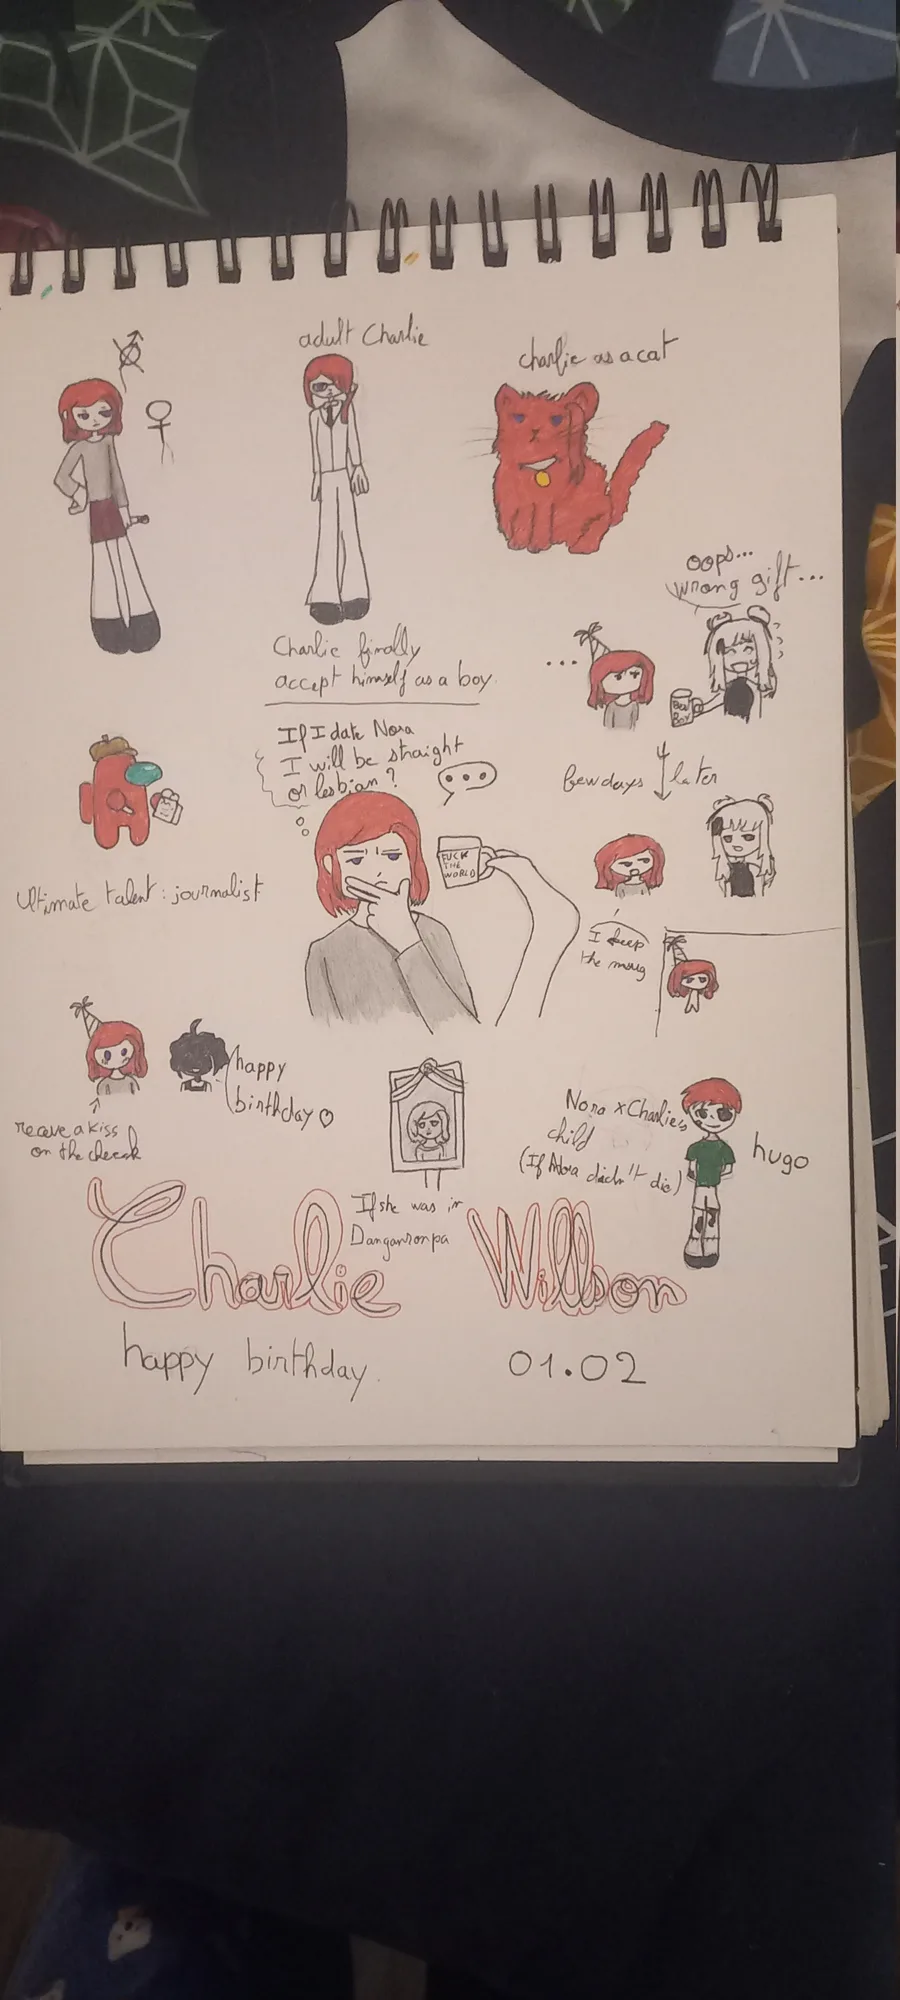 adult Charlie
charlie as a cat
Charlie finally
accept himself as a boy.
oops...
wrong gift...
...
Best
Boy
few days later
If I date Nora
I will be straight
or lesbian?
...
FUCK
THE
WORLD
I keep
the mug
Ultimate talent: journalist
happy
birthday
receave a kiss
on the cheeck
If she was in
Danganronpa
Nora x Charlie's
child
(If Nora didn't die)
hugo
Charlie Willson
happy birthday.
01.02